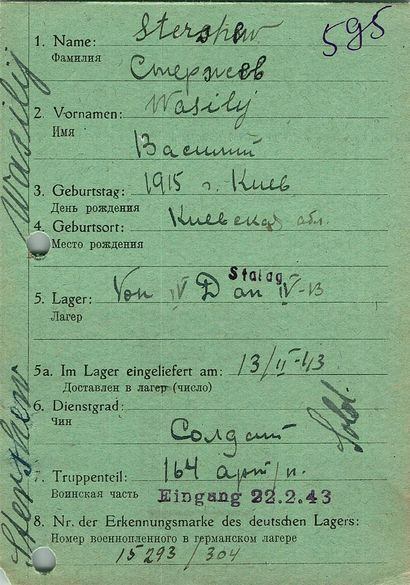 595
Stershew
1. Name:
Фамилия
Стержев
Wasilij
2. Vornamen:
Имя
Василий
3. Geburtstag: 1915 г. Киев
День рождения
4. Geburtsort: Киевская обл.
Место рождения
Stalag
5. Lager: Von IV D an IV-B
Лагерь
5a. Im Lager eingeliefert am: 13/II-43
Доставлен в лагерь (число)
6. Dienstgrad:
Чин
Солдат
Sold.
7. Truppenteil: 164 арт/п.
Воинская часть Eingang 22.2.43
8. Nr. der Erkennungsmarke des deutschen Lagers:
Номер военнопленного в германском лагере
15293/304
Stershew Wasilij